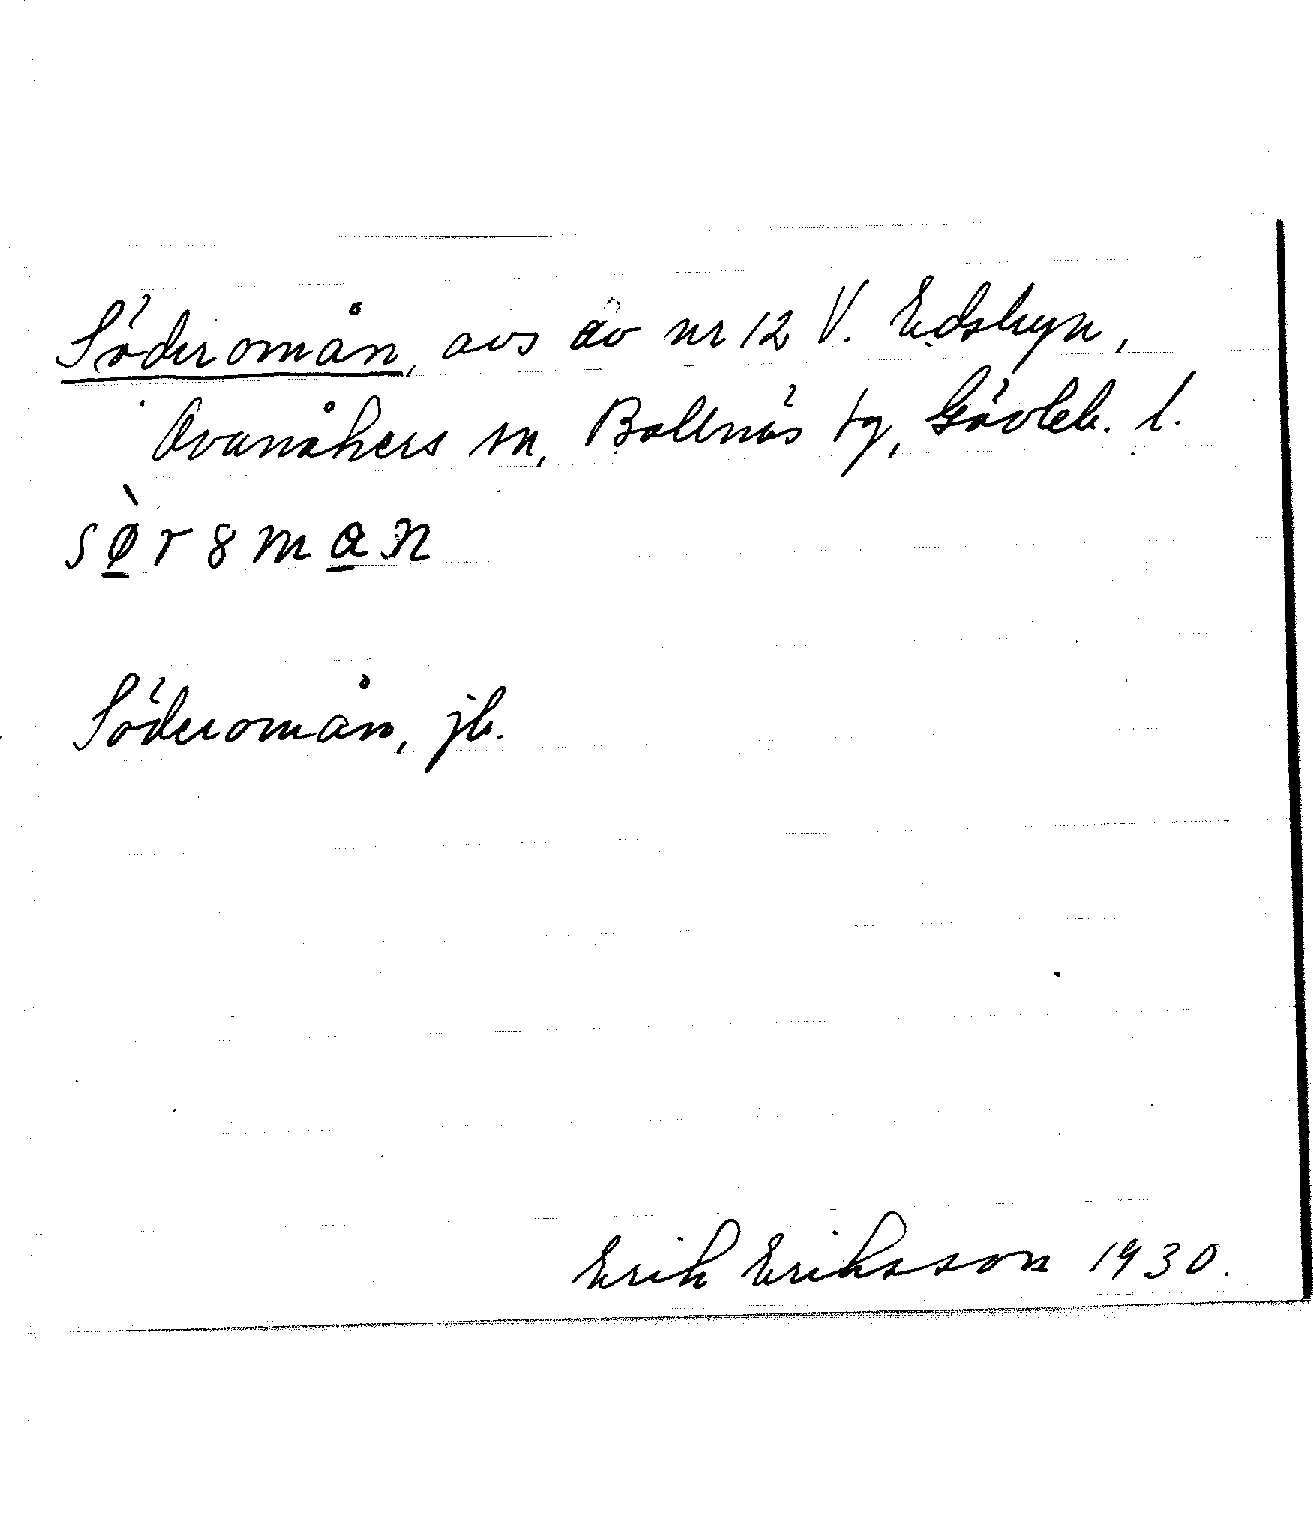 Söderomån, avs av nr 12 V. Edsbyn,
Ovanåkers sn, Bollnäs tg, Gävleb. l.
sø̲̀r8ma̲n
Söderomån, jb.
Erik Eriksson 1930.